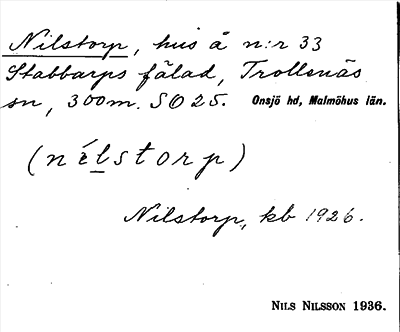 Nilstorp, hus å n:r 33
Stabbarps fälad, Trollenäs
sn, 300m. SO 25. Onsjö hd, Malmöhus län.
(nélstorp)
Nilstorp, kb 1926.
NILS NILSSON 1936.